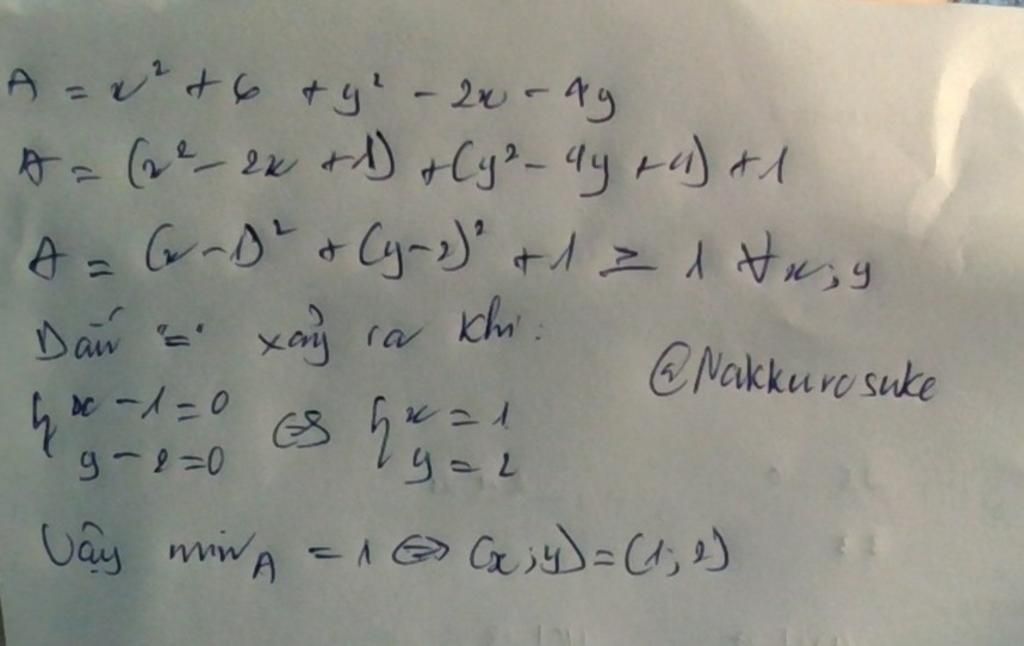 A = x² + 6 + y² - 2x - 4y
A = (x² - 2x + 1) + (y² - 4y + 4) + 1
A = (x - 1)² + (y - 2)² + 1 ≥ 1 ∀x; y
Dấu "=" xảy ra khi:
@Nakkurosuke
{ x - 1 = 0 ⇔ { x = 1
y - 2 = 0 y = 2
Vậy min A = 1 ⇔ (x; y) = (1; 2)